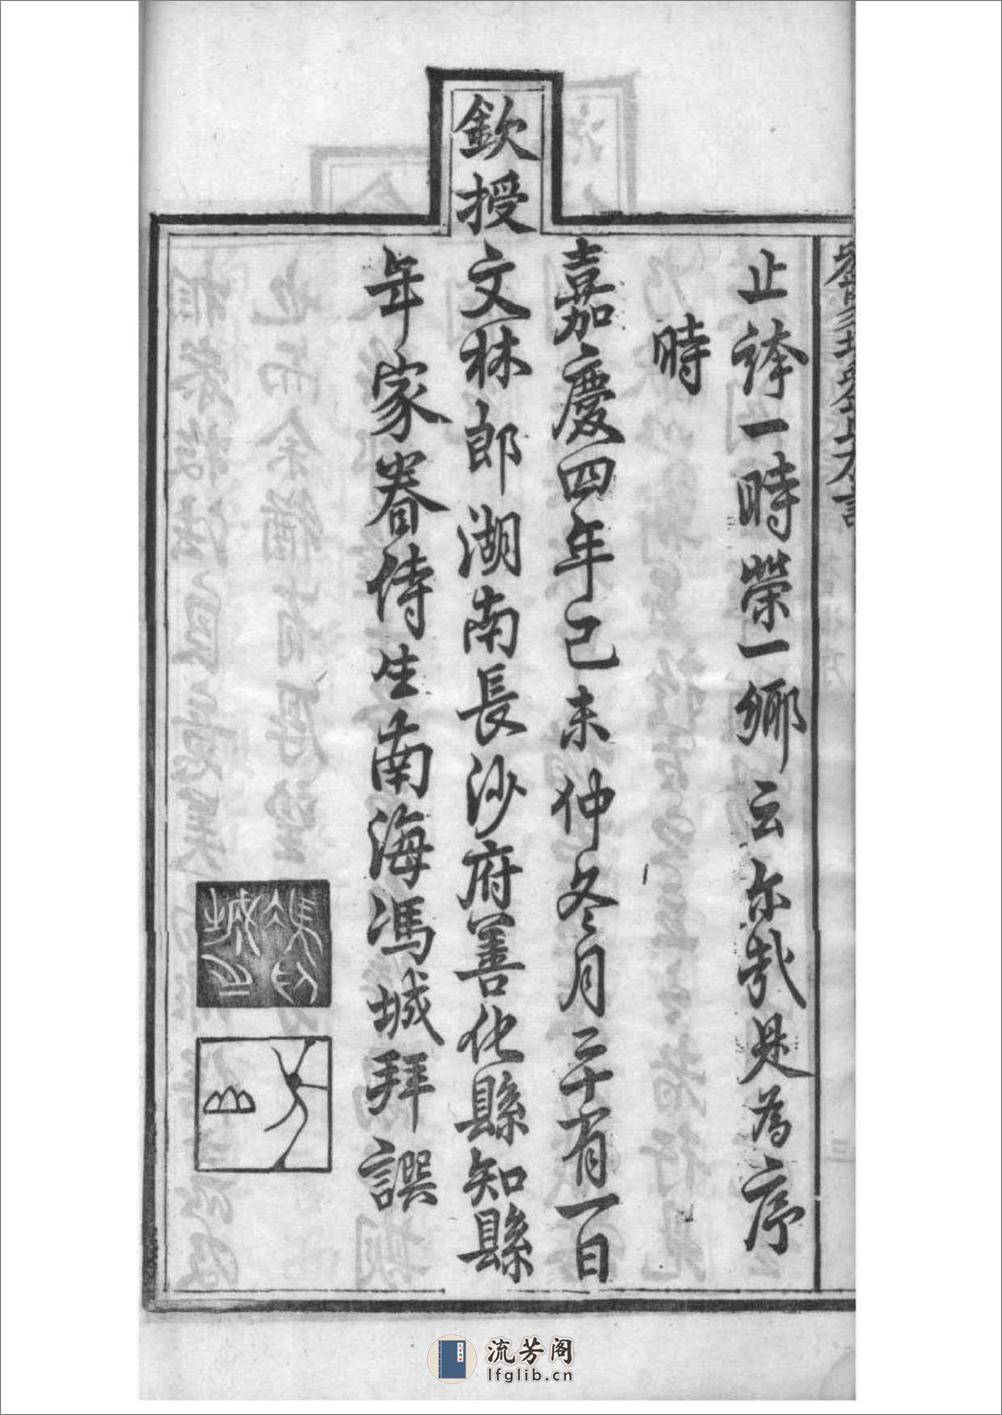 止誇一時榮一鄉云尔哉是為序
時
嘉慶四年己未仲冬月二十有一日
欽授文林郎湖南長沙府善化縣知縣
年家眷侍生南海馮城拜譔
馮城之印
流芳阁
lfglib.cn